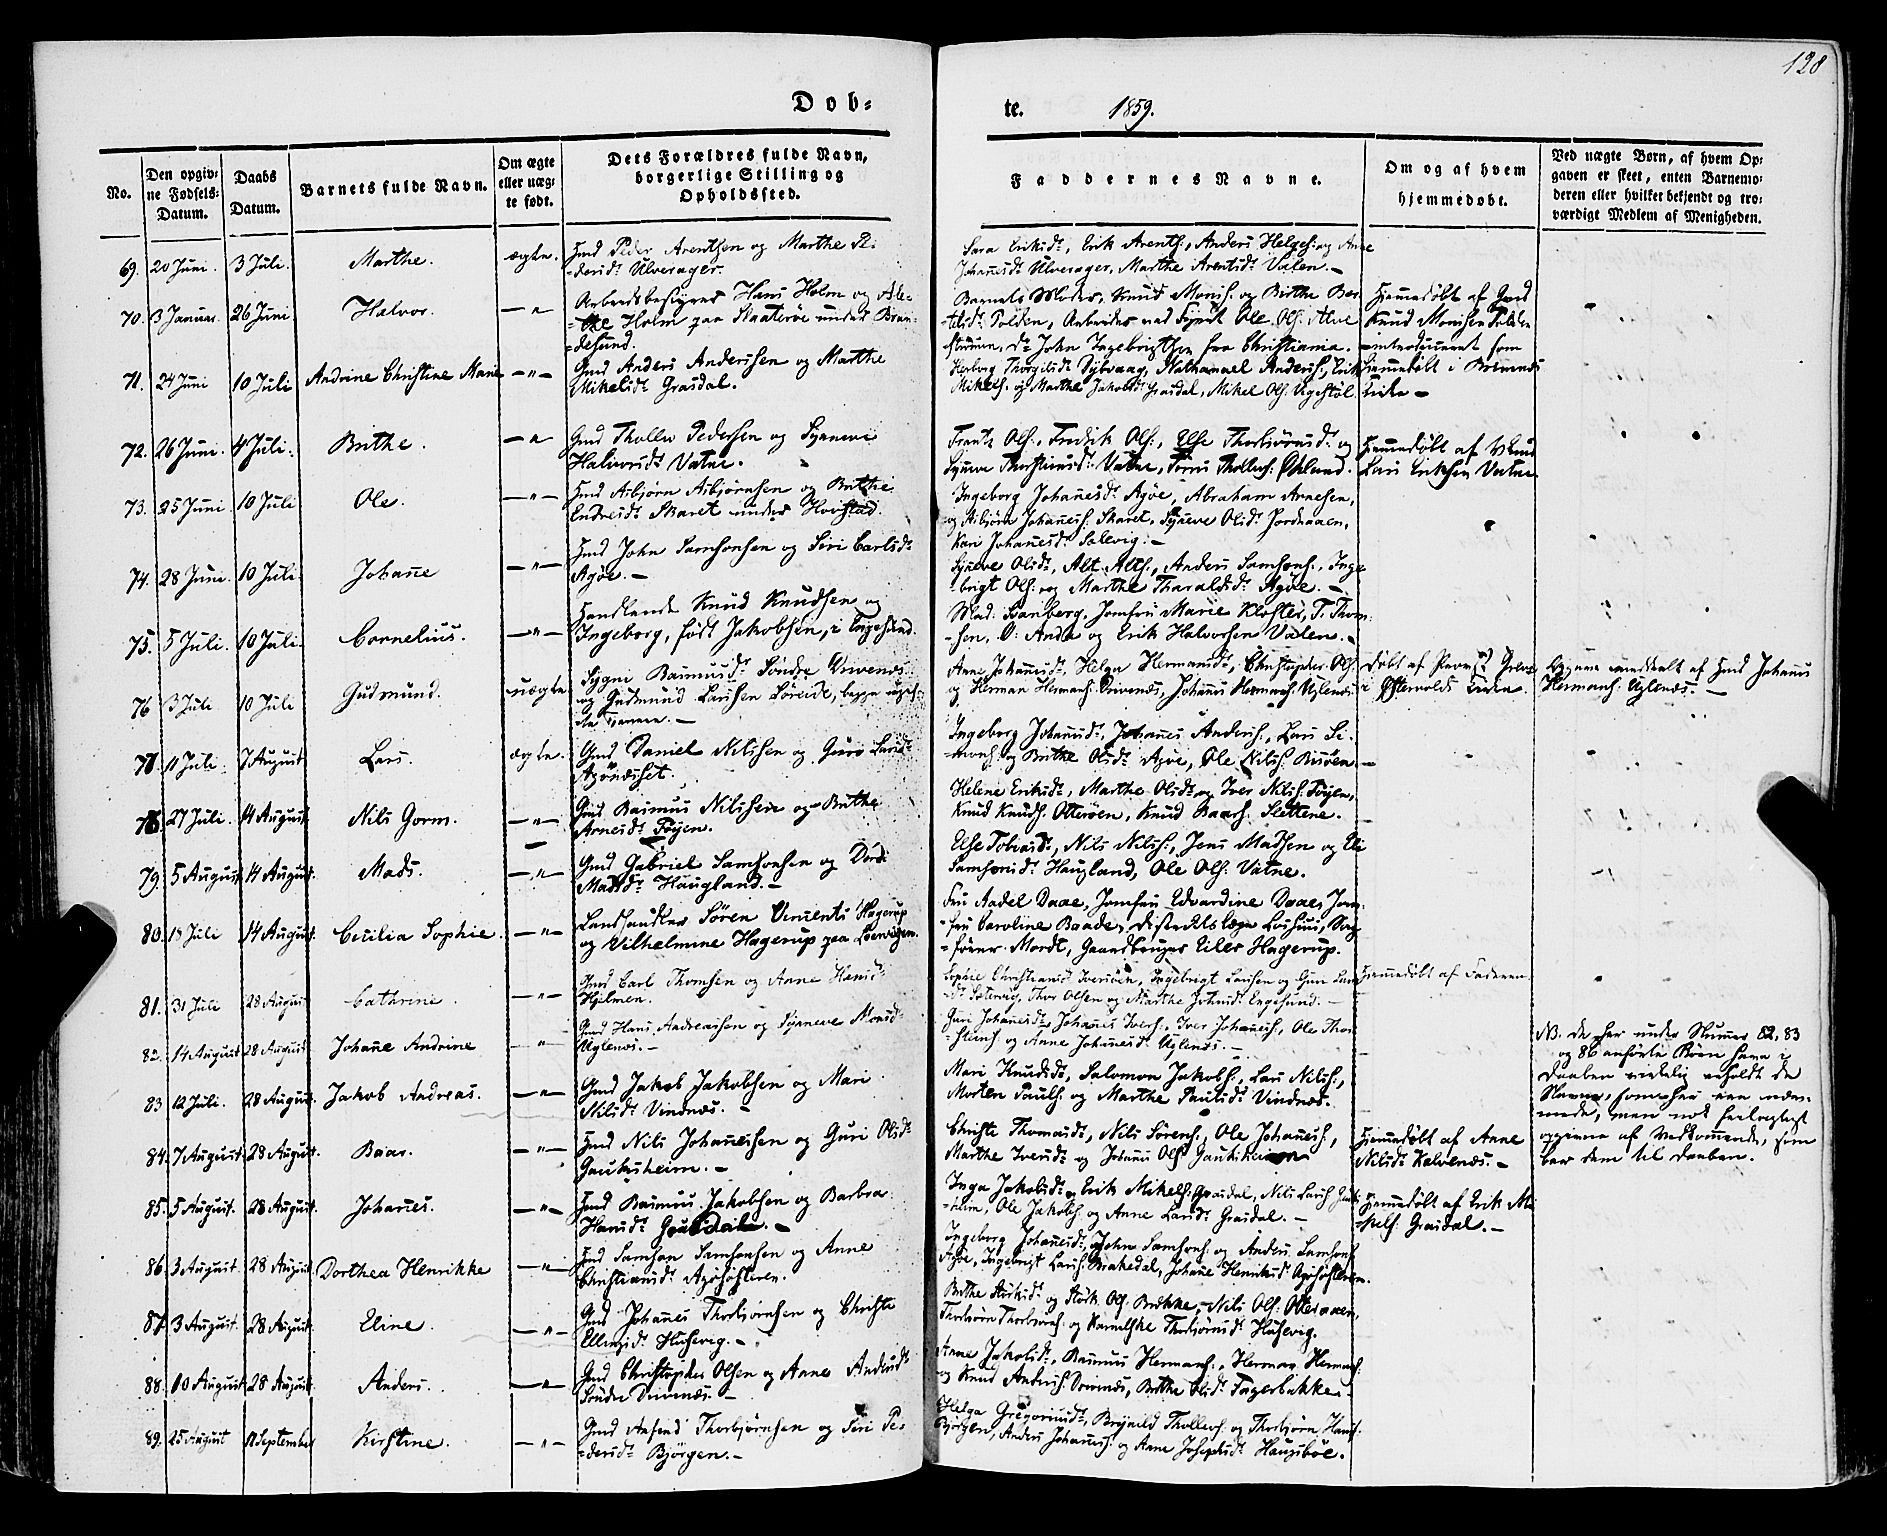 128
Døb-
te. 1859.
No.
Den opgiv-
ne Fødsels-
Datum.
Daabs
Datum.
Barnets fulde Navn.
Om ægte
eller uæg-
te født.
Dets Forældres fulde Navn,
borgerlige Stilling og
Opholdssted.
Faddernes Navne.
Om og af hvem
hjemmedøbt.
Ved uægte Børn, af hvem Op-
gaven er skeet, enten Barnemo-
deren eller hvilket bekjendt og tro-
værdigt Medlem af Menigheden.
69. 20 Juni. 3 Juli. Marthe. ægte. Gmd Peder Arentsen og Marthe Pe-
dersdr Ulverager.
Sara Eriksdr, Erik Arents., Anders Helges. og Anne
Johanesdr Ulverager, Marthe Arentsdr Valen.
70. 3 Januar. 26 Juni Halvor. -"- Arbeidsbestyrer Hans Holm og
Holm paa Skaterøe under Bran-
desund.
Barnets Moder, Knud Monss. og Brithe Bar-
Polden, Arbeider ved Fyret Ole Ols. Alve
John Ingebrigtsen fra Christiania.
Hjemmedøbt af Gmd
Knud Monsen Polden
introduceret som
71. 24 Juni 10 Juli Andrine Christine Marie -"- Gmd Anders Anderssen og Marthe
Mikelsdr Grasdal.
Herborg Thorgilsdr Dybvaag, Nathanael Anderss., Erik
Mikels. og Marthe Jakobsdr Grasdal, Mikel Ols. Vigestøl.
hjemmedøbt i Bremnes
Kirke
72. 26 Juni. 4 Juli. Brithe. -"- Gmd Thollev Pedersen og Synneve
Halvorsdr Vatne.
Frantz Ols., Fredrik Ols., Else Thorbjørnsdr og
Synneve Thorsteinsdr Vatne, Tholless. Økland.
Hjemmedøbt af
Lars Eriksen Vatne.
73. 25 Juni 10 Juli Ole. -"- Hmd Asbjørn Asbjørnsen og Brithe
Endresdr Skaret under Hovstad.
Ingeborg Johanesdr Agøe, Abraham Arnesen,
og Asbjørn Johaness. Skaret, Synneve Olsdr Jordaaen,
Kari Johanesdr Salevig.
74. 28 Juni. 10 Juli. Johane -"- Hmd John Samsonsen og Siri Carlsdr
Agøe.
Synneve Olsdr, Alt Alts., Anders Samsons., Inge-
brigt Ols. og Marthe Tharaldsdr Agøe.
75. 5 Juli. 10 Juli. Cornelius. -"- Handlende Knud Knudsen og
Ingeborg, født Jakobsen, i Engesund.
Mad. Svanberg, Jomfru Marie Kloster, T. Thom-
sen, O: Anda og Erik Halvorsen Valen.
76 3 Juli 10 Juli Gudmund. uægte Sygni Rasmusdr Søndre Drivenes
og Gudmund Larssen Søreide, begge ugif-
te Tjenere.
Anne Johanesdr, Helga Hermansdr, Christopher Ols.
og Herman Hermans. Drivenes, Johanes Hermans. Uglenæs
Døbt af
i Østervolds Kirken.
Opgave meddelt af Gmd Johanes
Hermans. Uglenæs.
77. 11 Juli. 7 August Lars. ægte. Gmd Daniel Nilssen og Guro Larsdr
Agønæsset.
Ingeborg Johanesdr, Johanes Anders., Lars Si-
mons. og Brithe Olsdr Agøe, Ole Nilss. Risøen.
78. 27 Juli. 14 August. Nils Gorm. -"- Gmd Rasmus Nilssen og Brithe
Arnesdr Føyen.
Helene Eriksdr, Marthe Olsdr og Iver Nilss. Føyen,
Knud Knuds. Otterøen, Knud Baars. Slettene.
79. 5 August 14 August. Mads. -"- Gmd Gabriel Samsonsen og Dord.
Madsdr Haugland.
Else Tobiasdr, Nils Nilss., Jens Madsen og Eli
Samsonsdr Haugland, Ole Ols. Vatne.
80. 18 Juli 14 August. Cecilia Sophie. -"- Landhandler Søren Hagerup
og Vilhelmine Hagerup paa Leervigen.
Fru Aadel Daae, Jomfru Edvardine Daae, Jom-
fru Caroline Baade, Districtslæge Sag-
fører Mordt, Gaardbruger Eiler Hagerup.
81. 31 Juli 28 August Cathrine. -"- Gmd Carl Thomsen og Anne Hansdr
Hjelmen.
Sophie Christiansdr Iversøen, Ingebrigt Larssen og Guri Lars-
dr Sætervig, Thor Olsen og Marthe Engesund.
Hjemmedøbt af Faderen.
82. 14 August 28 August. Johane Andrine -"- Gmd Hans Andreassen og Synneve Monsdr
Uglenæs.
Guri Johanesdr, Johanes Ivers., Iver Johaness., Ole Thor-
steins. og Anne Johanesdr Uglenæs.
NB. De her under Nummer 82, 83
og 86 anførte Børn have i
Daaben virkelig erholdt de
Navne, som her ere
men nok feilagtigt
opgivne af Vedkommende, som
bar dem til Daaben.
83 12 Juli. 28 August. Jakob Andreas. -"- Gmd Jakob Jakobsen og Mari
Nilsdr Vindnæs.
Mari Knudsdr, Salomon Jakobs., Lars Nilss.,
Morten Pauls. og Marthe Paulsdr Vindnæs.
84. 7 August. 28 August. Baar. -"- Hmd Nils Johanessen og Guri Olsdr
Gauksheim.
Christe Thomasdr, Nils Sørens., Ole Johaness.,
Marthe Iversdr og Johanes Ols. Gauksheim
Hjemmedøbt af Anne
Nilsdr Kalvenæs.
85. 5 August. 28 August. Johanes. -"- Hmd Rasmus Jakobsen og Barbra
Hansdr Grasdal.
Inga Jakobsdr og Erik Mikels. Grasdal, Nils Larss.
Ole Jakobs. og Anne Larsdr Grasdal.
Hjemmedøbt af Erik Mi-
kels. Grasdal.
86. 3 August. 28 August. Dorthea Henrikke -"- Hmd Samson Samsonsen og Anne
Christiansdr Agøholmen.
Ingeborg Johanesdr, John Samsons. og Anders Samsons.
Agøe, Ingebrigt Larss. Brakedal, Johane Henriksdr
87. 3 August. 28 August. Eline. -"- Gmd Johanes Thorbjørnsen og Christe
Ellingsdr Husevig.
Brithe Størksdr og Størk Ols. Nils Ols. Otteraaen,
Thorbjørn Thorbjørns. og Thorbjørnsdr Husevig.
88. 10 August 28 August. Anders. -"- Gmd Christopher Olsen og Anne Andersdr
Søndre Drivenæs.
Anne Jakobsdr, Rasmus Hermans., Herman Hermans.
og Knud Anders. Drivenæs, Brithe Olsdr Fagerbakke.
89. 25 August 11 September Kirstine. -"- Gmd Thorbjørnsen og Siri Pe-
dersdr Bjørgen.
Helga Gregoriusdr, Brynild Tholless. og Thorbjørn Hans.
Bjørgen, Anders Johaness. og Anne Josephsdr Haugsbøe.